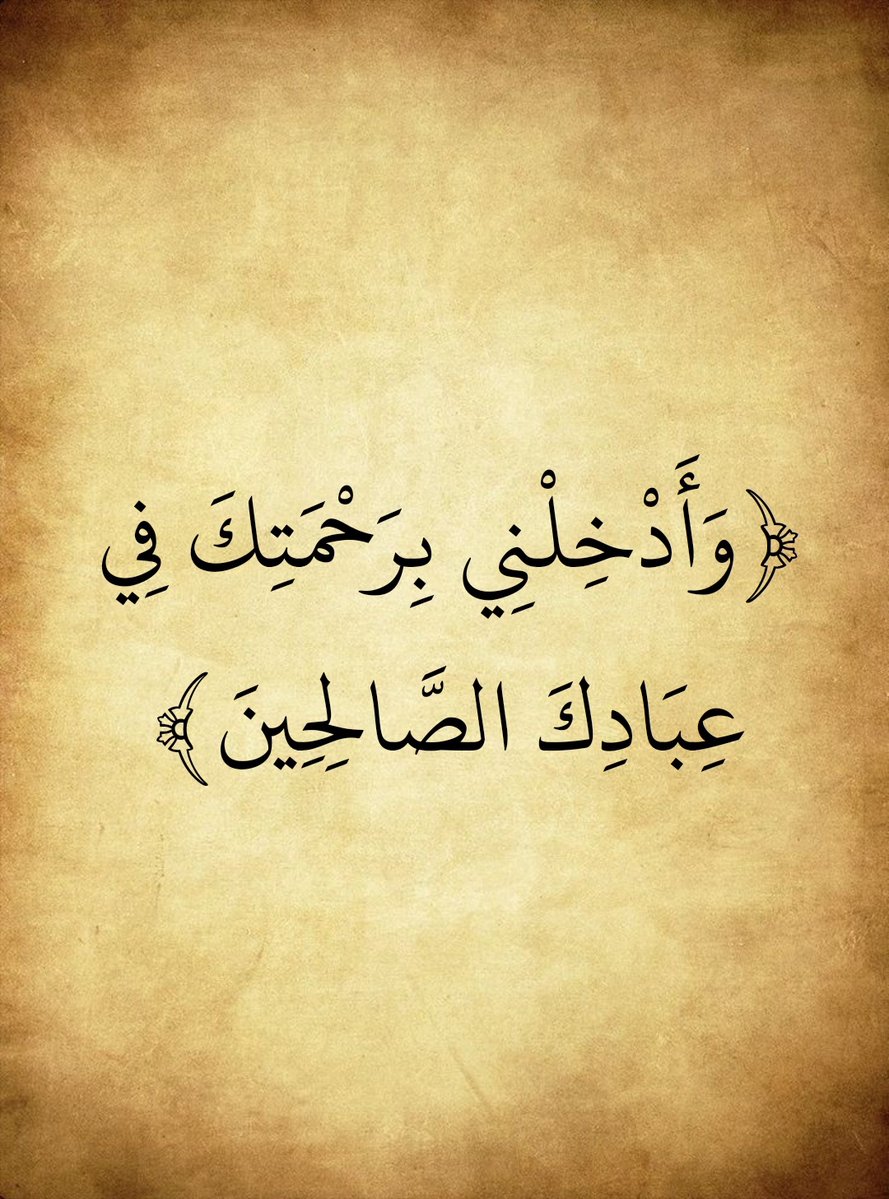 ﴿ وَأَدْخِلْنِي بِرَحْمَتِكَ فِي
عِبَادِكَ الصَّالِحِينَ ﴾